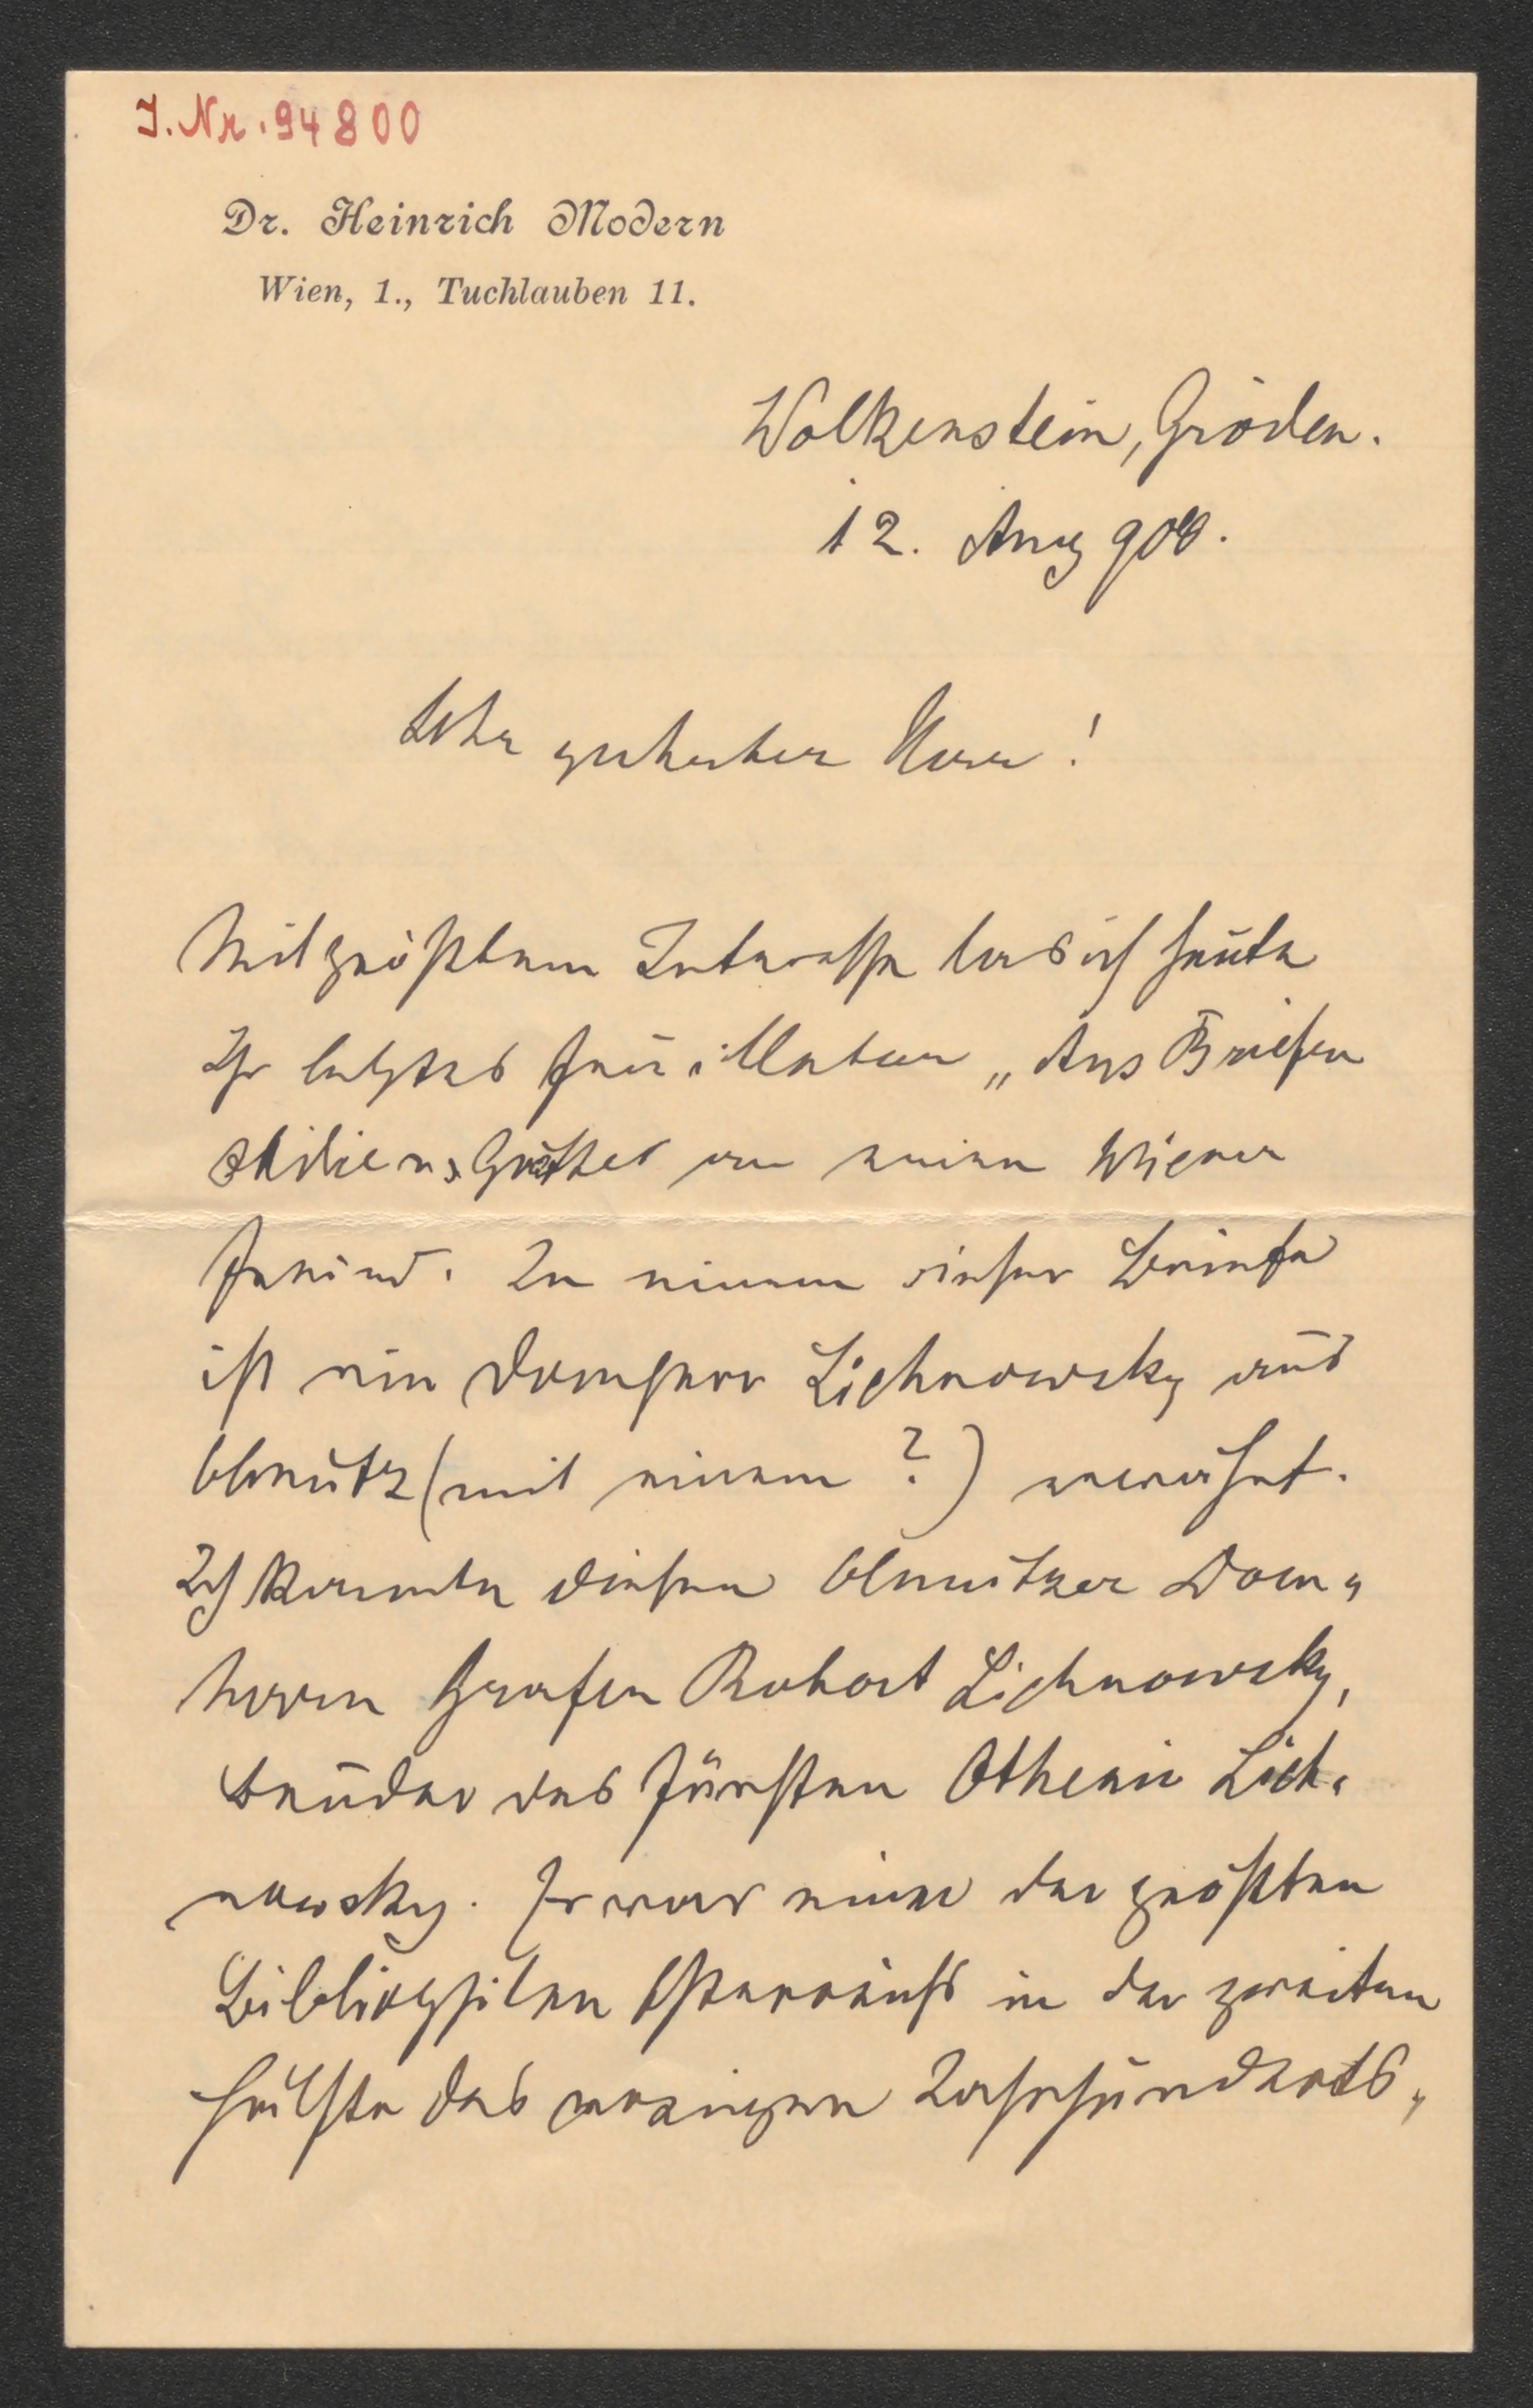 J. Nr. 94800
Dr. Heinrich Modern
Wien, 1., Tuchlauben 11.
Wolkenstein, Gröden.
12. Aug 908.
Sehr geehrter Herr!
Mit größtem Interesse las ich heute
Ihr letztes Feuilleton „Aus Briefen
Ottilie v. Goethes an einen Wiener
Freund. In einem dieser Briefe
ist ein Domherr Lichnowsky aus
Olmütz (mit einem ?) erwähnt.
Ich kannte diesen Olmützer Dom-
herrn Grafen Robert Lichnowsky,
Bruder des Fürsten Othenio Lich-
nowsky. Er war einer der größten
Bibliophilen Österreichs in der zweiten
Hälfte des vorigen Jahrhunderts,